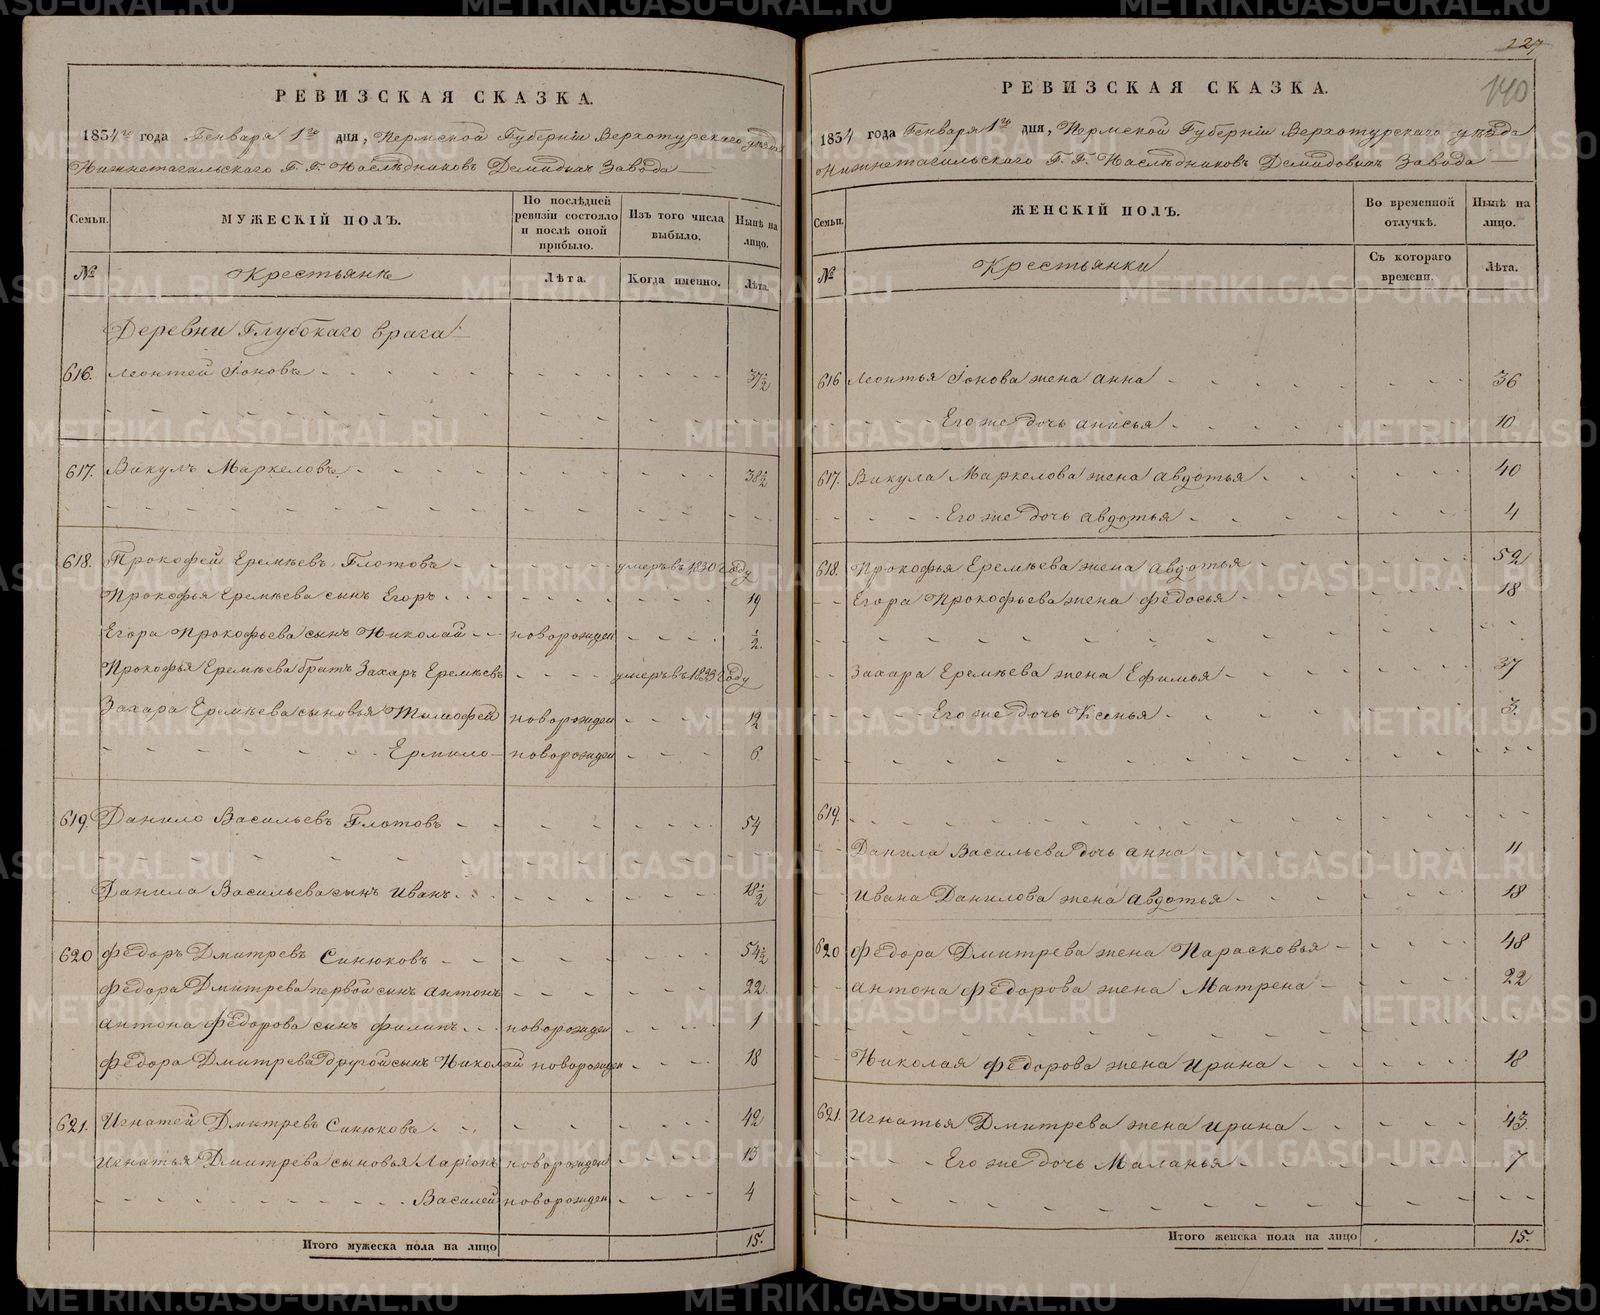 РЕВИЗСКАЯ СКАЗКА.
1834го года Генваря 1го дня, Пермской Губерніи Верхотурскаго уѣзда
Нижнетагильскаго Г. Г. Наслѣдниковъ Демидовыхъ Завода
Семьи.
МУЖЕСКІЙ ПОЛЪ.
По послѣдней ревизіи состояло и послѣ оной прибыло.
Изъ того числа выбыло.
Нынѣ на лицо.
№
Крестьянъ
Лѣта.
Когда именно.
Лѣта.
Деревни Глубокаго врага
616. Леонтей Іоновъ 37½
617. Викулъ Маркеловъ 38½
618. Прокофей Еремѣевъ Глотовъ умеръ въ 1830 году
Прокофья Еремѣева сынъ Егоръ 19
Егора Прокофьева сынъ Николай новорожден ½
Прокофья Еремѣева братъ Захаръ Еремѣевъ умеръ въ 1833 году
Захара Еремѣева сыновья Тимофей новорожден 12
Ермило новорожден 6
619. Данило Васильевъ Глотовъ 54
Данила Васильева сынъ Иванъ 18½
620 Федоръ Дмитревъ Синюковъ 54½
Федора Дмитрева первой сынъ Антонъ 22
Антона Федорова сынъ Филипъ новорожден 1
Федора Дмитрева другой сынъ Николай новорожден 18
621. Игнатей Дмитревъ Синюковъ 42
Игнатья Дмитрева сыновья Ларіонъ новорожден 13
Василей новорожден 4
Итого мужеска пола на лицо 15.
227
140
РЕВИЗСКАЯ СКАЗКА.
1834 года Генваря 1го дня, Пермской Губерніи Верхотурскаго уѣзда
Нижнетагильскаго Г. Г. Наслѣдниковъ Демидовыхъ Завода
Семьи.
ЖЕНСКІЙ ПОЛЪ.
Во временной отлучкѣ.
Нынѣ на лицо.
№
Крестьянки
Съ котораго времени.
Лѣта.
616 Леонтья Іонова жена Анна 36
Его же дочь Анисья 10
617. Викула Маркелова жена Авдотья 40
Его же дочь Авдотья 4
618. Прокофья Еремѣева жена Авдотья 52
Егора Прокофьева жена Федосья 18
Захара Еремѣева жена Ефимья 37
Его же дочь Ксенья 3.
619.
Данила Васильева дочь Анна 11
Ивана Данилова жена Авдотья 18
620 Федора Дмитрева жена Парасковья 48
Антона Федорова жена Матрена 22
Николая Федорова жена Ирина 18
621 Игнатья Дмитрева жена Ирина 43.
Его же дочь Маланья 7
Итого женска пола на лицо 15.
METRIKI.GASO-URAL.RU